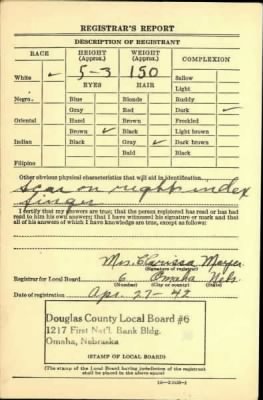 REGISTRAR'S REPORT
DESCRIPTION OF REGISTRANT
RACE HEIGHT (Approx.) WEIGHT (Approx.) COMPLEXION
5-3 150
White ✓ EYES HAIR Sallow
Light
Negro Blue Blonde Ruddy
Gray Red Dark ✓
Oriental Hazel Brown Freckled
Brown ✓ Black Light brown
Indian Black Gray ✓ Dark brown
Bald Black
Filipino
Other obvious physical characteristics that will aid in identification
scar on right index
finger
I certify that my answers are true; that the person registered has read or has had
read to him his own answers; that I have witnessed his signature or mark and that
all of his answers of which I have knowledge are true, except as follows:
Mrs. Clarissa
(Signature of registrar)
Registrar for Local Board 6 Omaha Nebr.
(Number) (City or county) (State)
Date of registration Apr. 27-42
Douglas County Local Board #6
1217 First Nat'l. Bank Bldg.
Omaha, Nebraska
(STAMP OF LOCAL BOARD)
(The stamp of the Local Board having jurisdiction of the registrant
shall be placed in the above space)